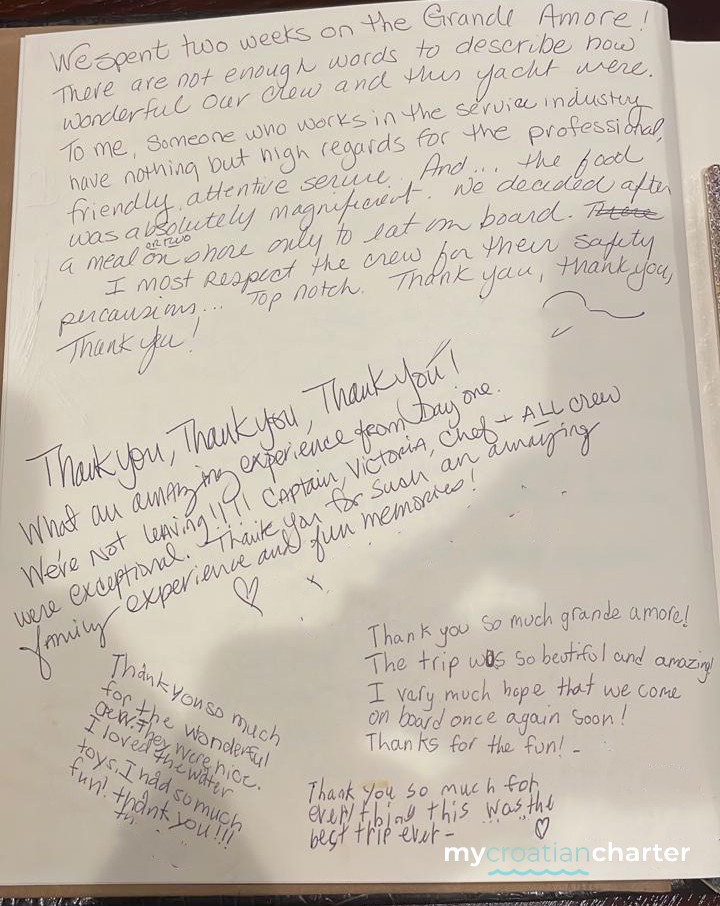 We spent two weeks on the Grande Amore!
There are not enough words to describe how
wonderful our crew and this yacht were.
To me, someone who works in the service industry
have nothing but high regards for the professional,
friendly, attentive service. And... the food
was absolutely magnificent. We decided after
a meal on or two shore only to eat on board. There
I most respect the crew for their safety
percausions... Top notch. Thank you, thank you,
Thank you!
Thank you, Thank you, Thank you!
What an amazing experience from Day one.
We're Not leaving!!!! Captain, Victoria, Chef + ALL crew
were exceptional. Thank you for such an amazing
family experience and fun memories!
Thank you so much grande amore!
The trip was so beutiful and amazing!
I vary much hope that we come
on board once again soon!
Thanks for the fun! -
Thank you so much
for the wonderful
crew. They were nice.
I loved the water
toys. I had so much
fun! thank you!!!
Thank you so much for
everything this was the
best trip ever -
mycroatiancharter